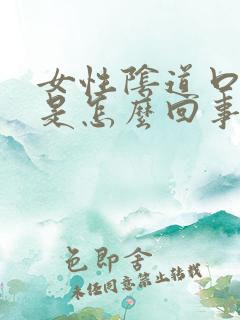 女性陰道口
是怎麼回事
色即舍
未经同意禁止转载